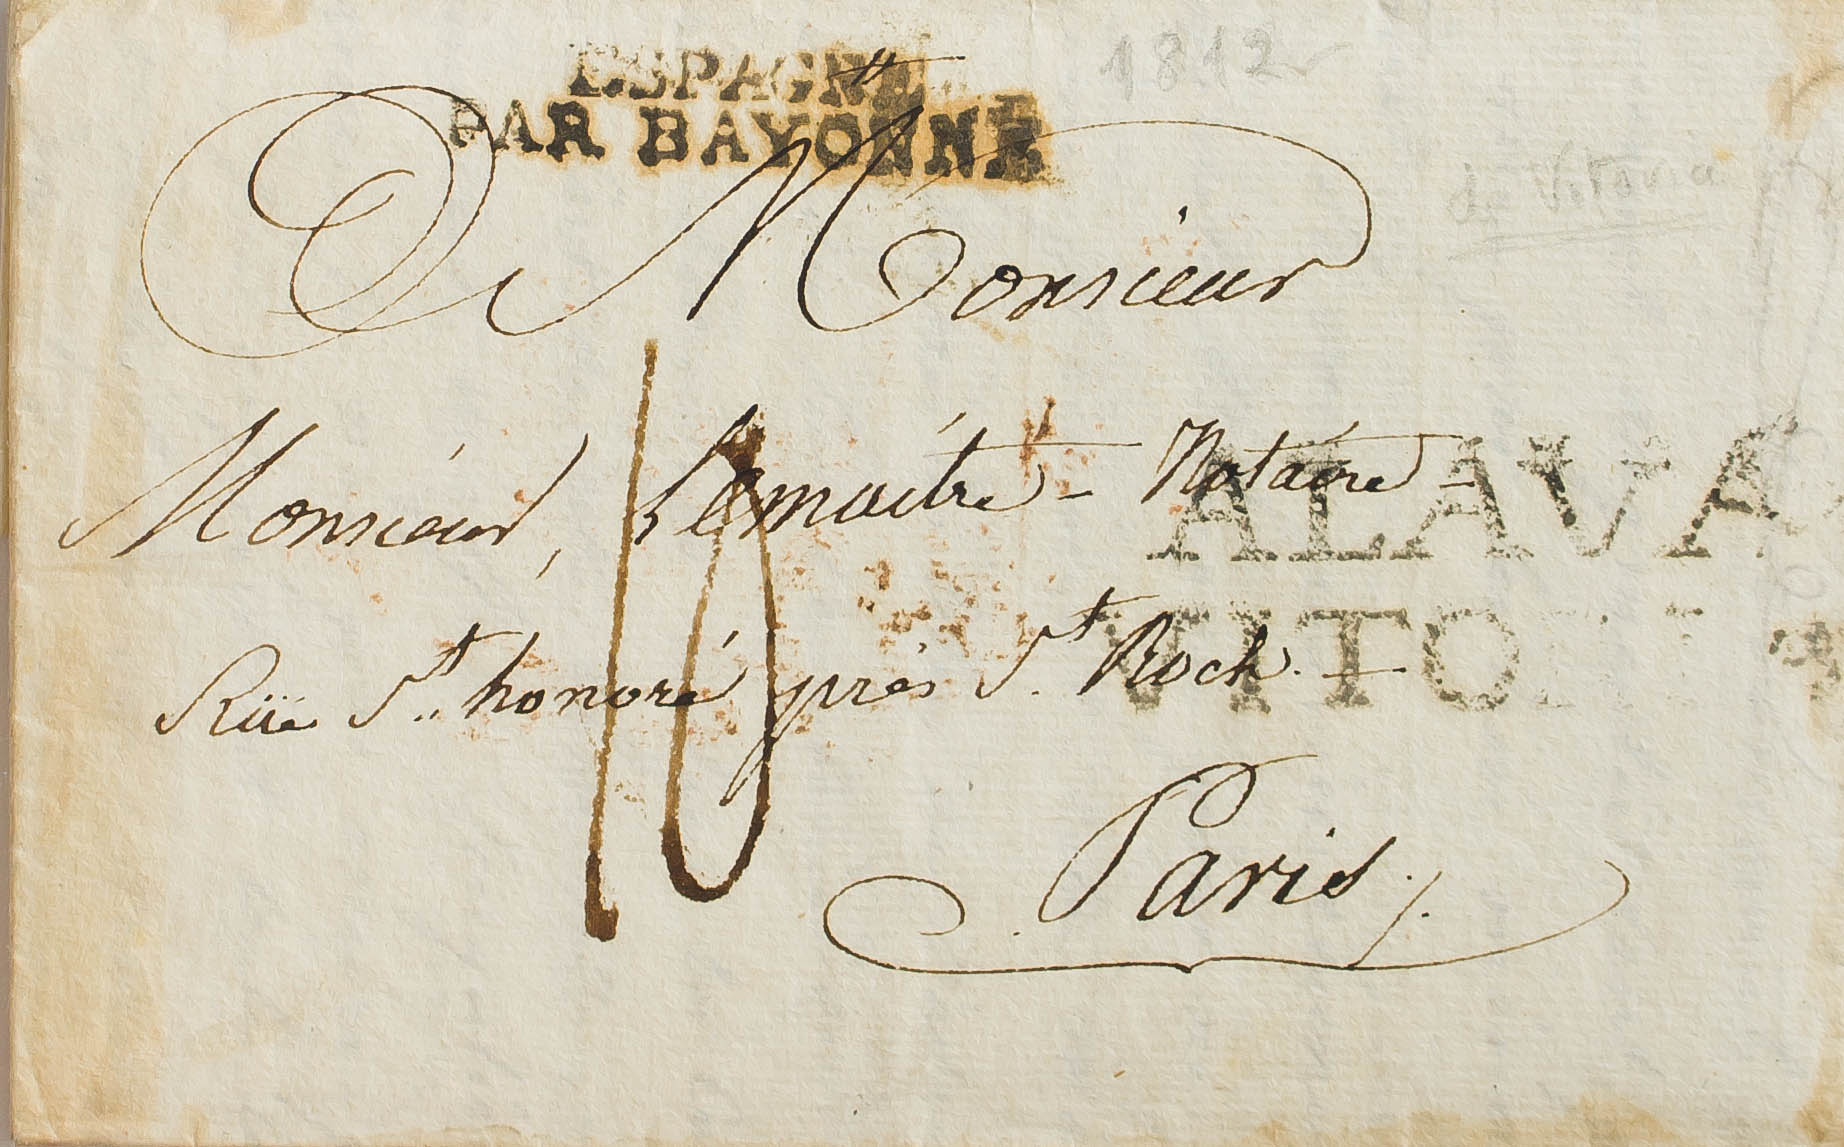 ESPAGNE
PAR BAYONNE
1812
de Vitoria
A Monsieur
Monsieur, Lemaitre - Notaire -
ALAVA
Rüe St. honoré près St. Roch. -
VITORIA
10
Paris.